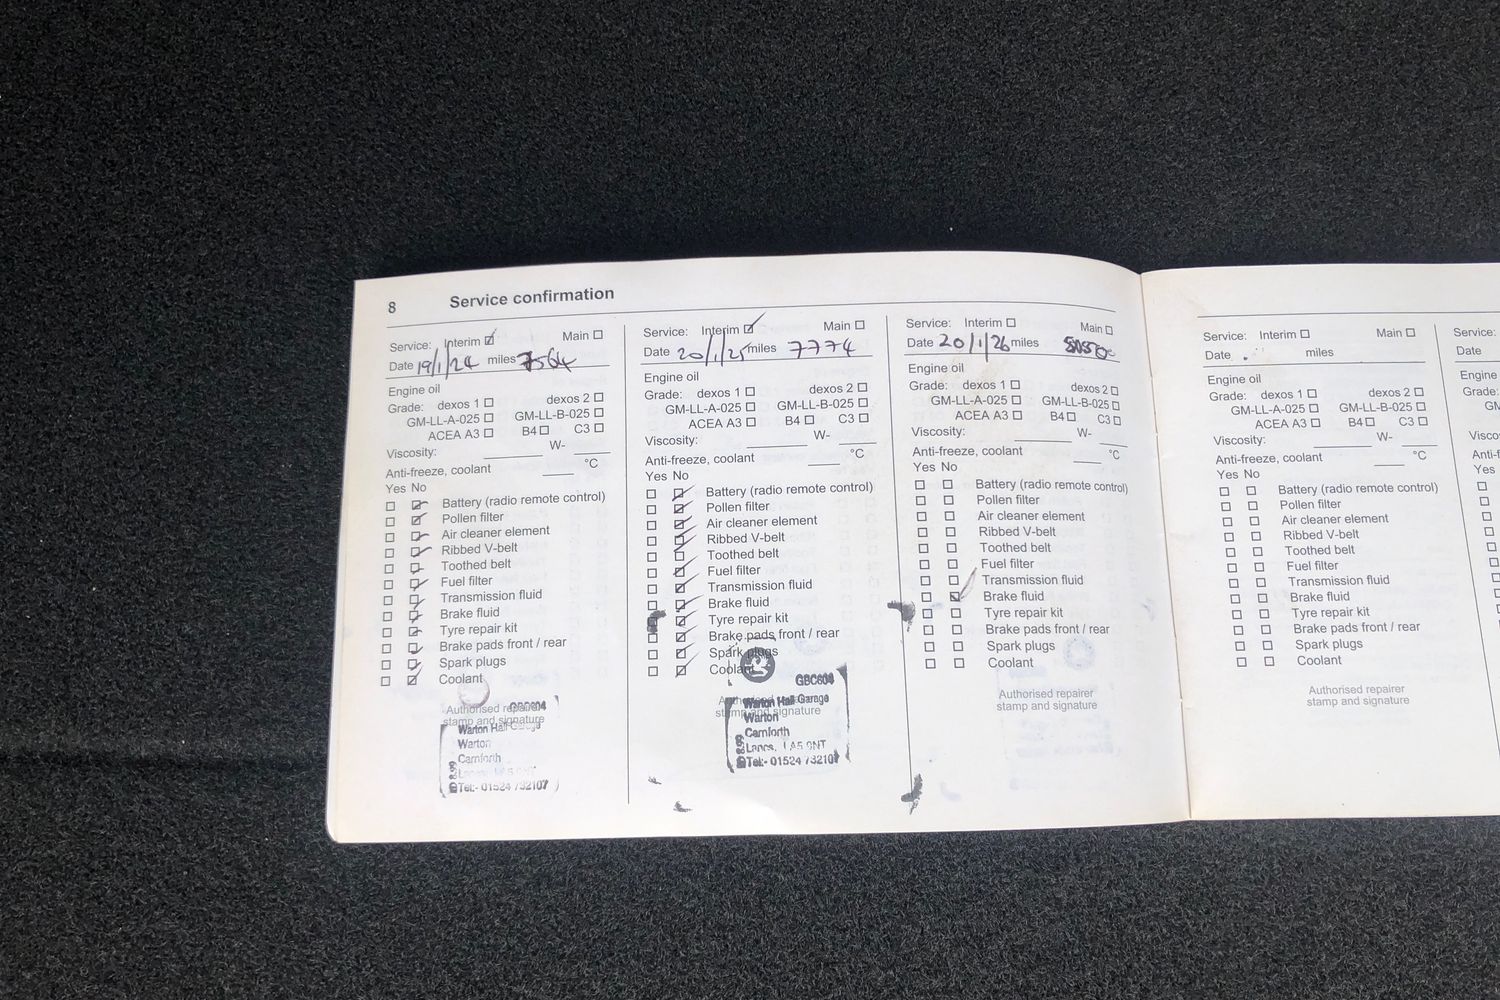 8 Service confirmation
Service: Interim Main
Date 19/1/24 miles 7564
Engine oil
Grade: dexos 1 dexos 2
GM-LL-A-025 GM-LL-B-025
ACEA A3 B4 C3
Viscosity: W-
Anti-freeze, coolant °C
Yes No
Battery (radio remote control)
Pollen filter
Air cleaner element
Ribbed V-belt
Toothed belt
Fuel filter
Transmission fluid
Brake fluid
Tyre repair kit
Brake pads front / rear
Spark plugs
Coolant
Authorised repairer
stamp and signature
GBC604
Warton Hall Garage
Warton
Carnforth
Tel:- 01524 732107
Service: Interim Main
Date 20/1/25 miles 7774
Engine oil
Grade: dexos 1 dexos 2
GM-LL-A-025 GM-LL-B-025
ACEA A3 B4 C3
Viscosity: W-
Anti-freeze, coolant °C
Yes No
Battery (radio remote control)
Pollen filter
Air cleaner element
Ribbed V-belt
Toothed belt
Fuel filter
Transmission fluid
Brake fluid
Tyre repair kit
Brake pads front / rear
Spark plugs
Coolant
Authorised repairer
stamp and signature
GBC604
Warton Hall Garage
Warton
Carnforth
Lancs, LA5 9NT
Tel:- 01524 732107
Service: Interim Main
Date 20/1/26 miles
Engine oil
Grade: dexos 1 dexos 2
GM-LL-A-025 GM-LL-B-025
ACEA A3 B4 C3
Viscosity: W-
Anti-freeze, coolant °C
Yes No
Battery (radio remote control)
Pollen filter
Air cleaner element
Ribbed V-belt
Toothed belt
Fuel filter
Transmission fluid
Brake fluid
Tyre repair kit
Brake pads front / rear
Spark plugs
Coolant
Authorised repairer
stamp and signature
Service: Interim Main
Date miles
Engine oil
Grade: dexos 1 dexos 2
GM-LL-A-025 GM-LL-B-025
ACEA A3 B4 C3
Viscosity: W-
Anti-freeze, coolant °C
Yes No
Battery (radio remote control)
Pollen filter
Air cleaner element
Ribbed V-belt
Toothed belt
Fuel filter
Transmission fluid
Brake fluid
Tyre repair kit
Brake pads front / rear
Spark plugs
Coolant
Authorised repairer
stamp and signature
Service:
Date
Engine
Grade: